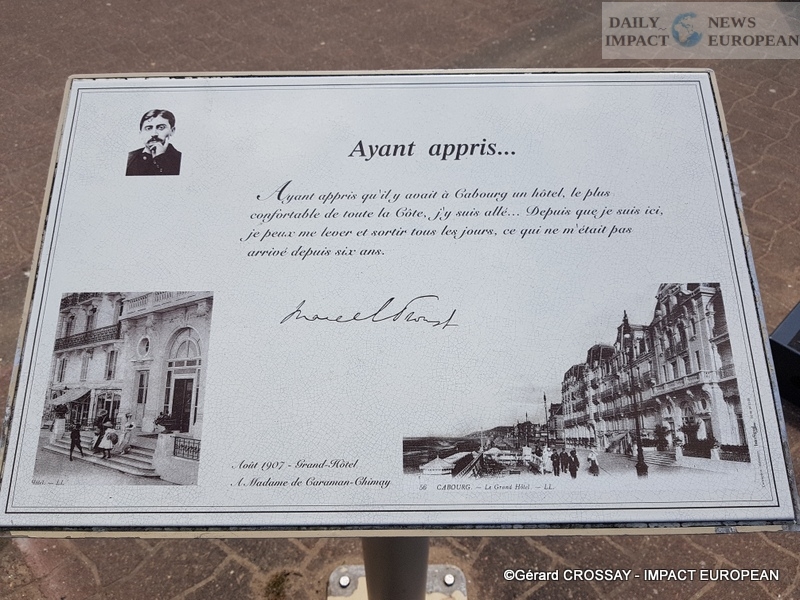 DAILY NEWS
IMPACT EUROPEAN
Ayant appris...
Ayant appris qu'il y avait à Cabourg un hôtel, le plus
confortable de toute la Côte, j'y suis allé... Depuis que je suis ici,
je peux me lever et sortir tous les jours, ce qui ne m'était pas
arrivé depuis six ans.
Marcel Proust
Août 1907 - Grand-Hôtel
A Madame de Caraman-Chimay
Hôtel. - LL.
56 CABOURG. - Le Grand Hôtel. - LL.
©Gérard CROSSAY - IMPACT EUROPEAN